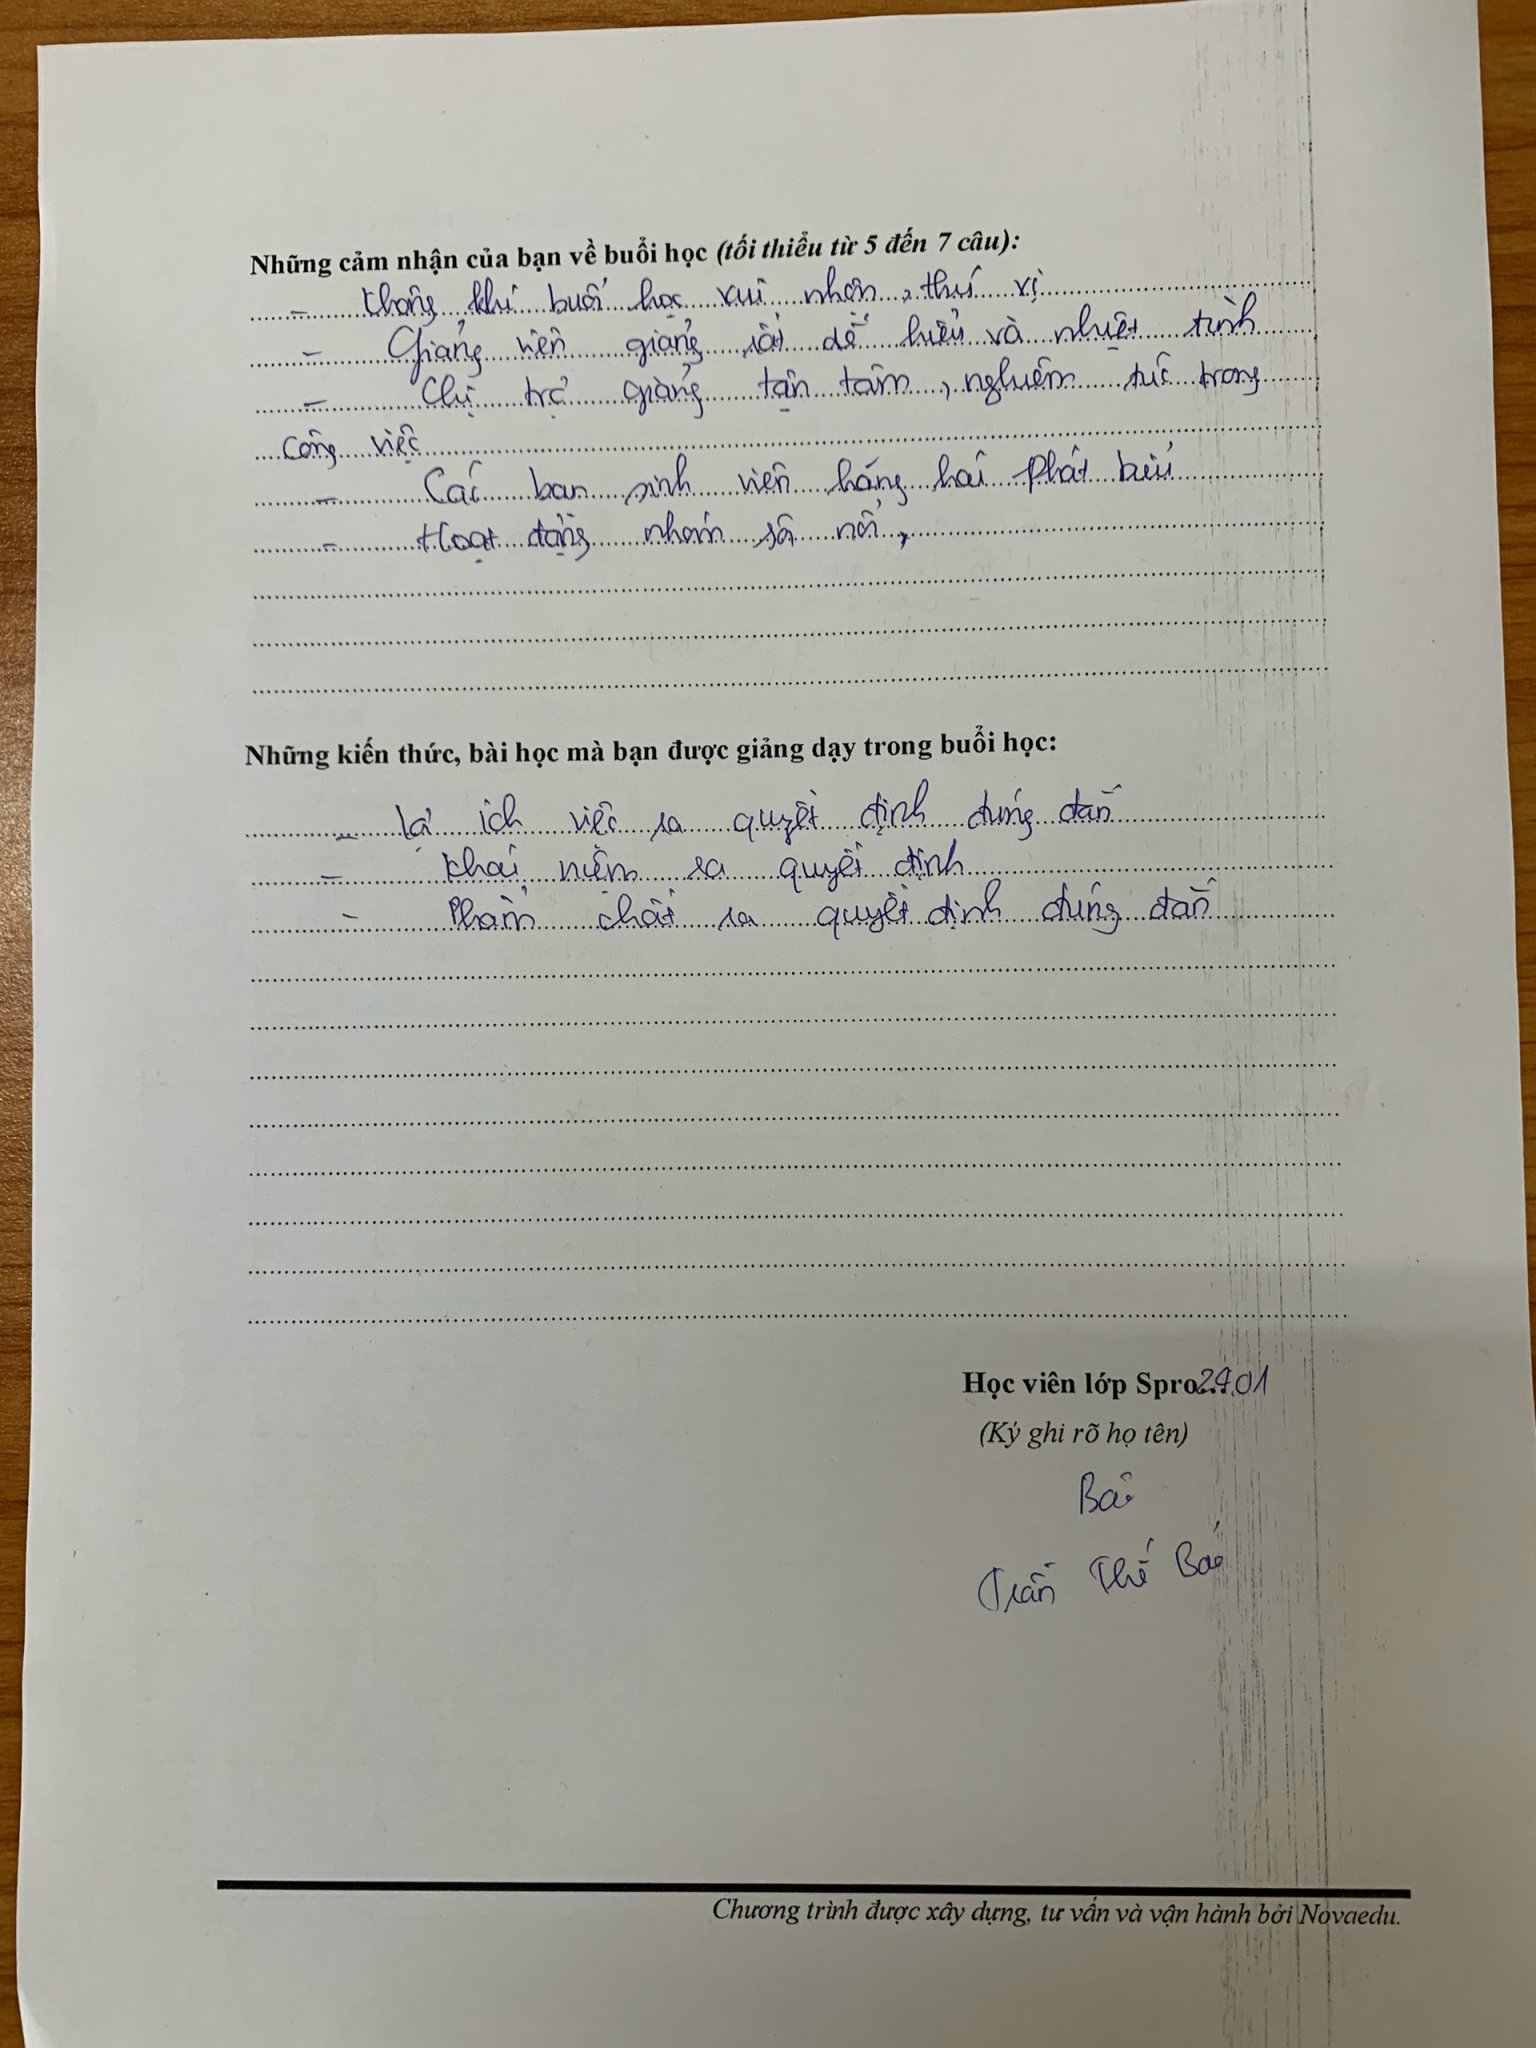 Những cảm nhận của bạn về buổi học (tối thiểu từ 5 đến 7 câu):
- Không khí buổi học vui nhộn, thú vị
- Giảng viên giảng rất dễ hiểu và nhiệt tình
- Chị trợ giảng tận tâm, nghiêm túc trong
công việc
- Các bạn sinh viên hăng hái phát biểu
- Hoạt động nhóm sôi nổi,
Những kiến thức, bài học mà bạn được giảng dạy trong buổi học:
- Lợi ích việc ra quyết định đúng đắn
- Khái niệm ra quyết định
- Phẩm chất ra quyết định đúng đắn
Học viên lớp Spro...29.01
(Ký ghi rõ họ tên)
Bảo
Trần Thế Bảo
Chương trình được xây dựng, tư vấn và vận hành bởi Novaedu.